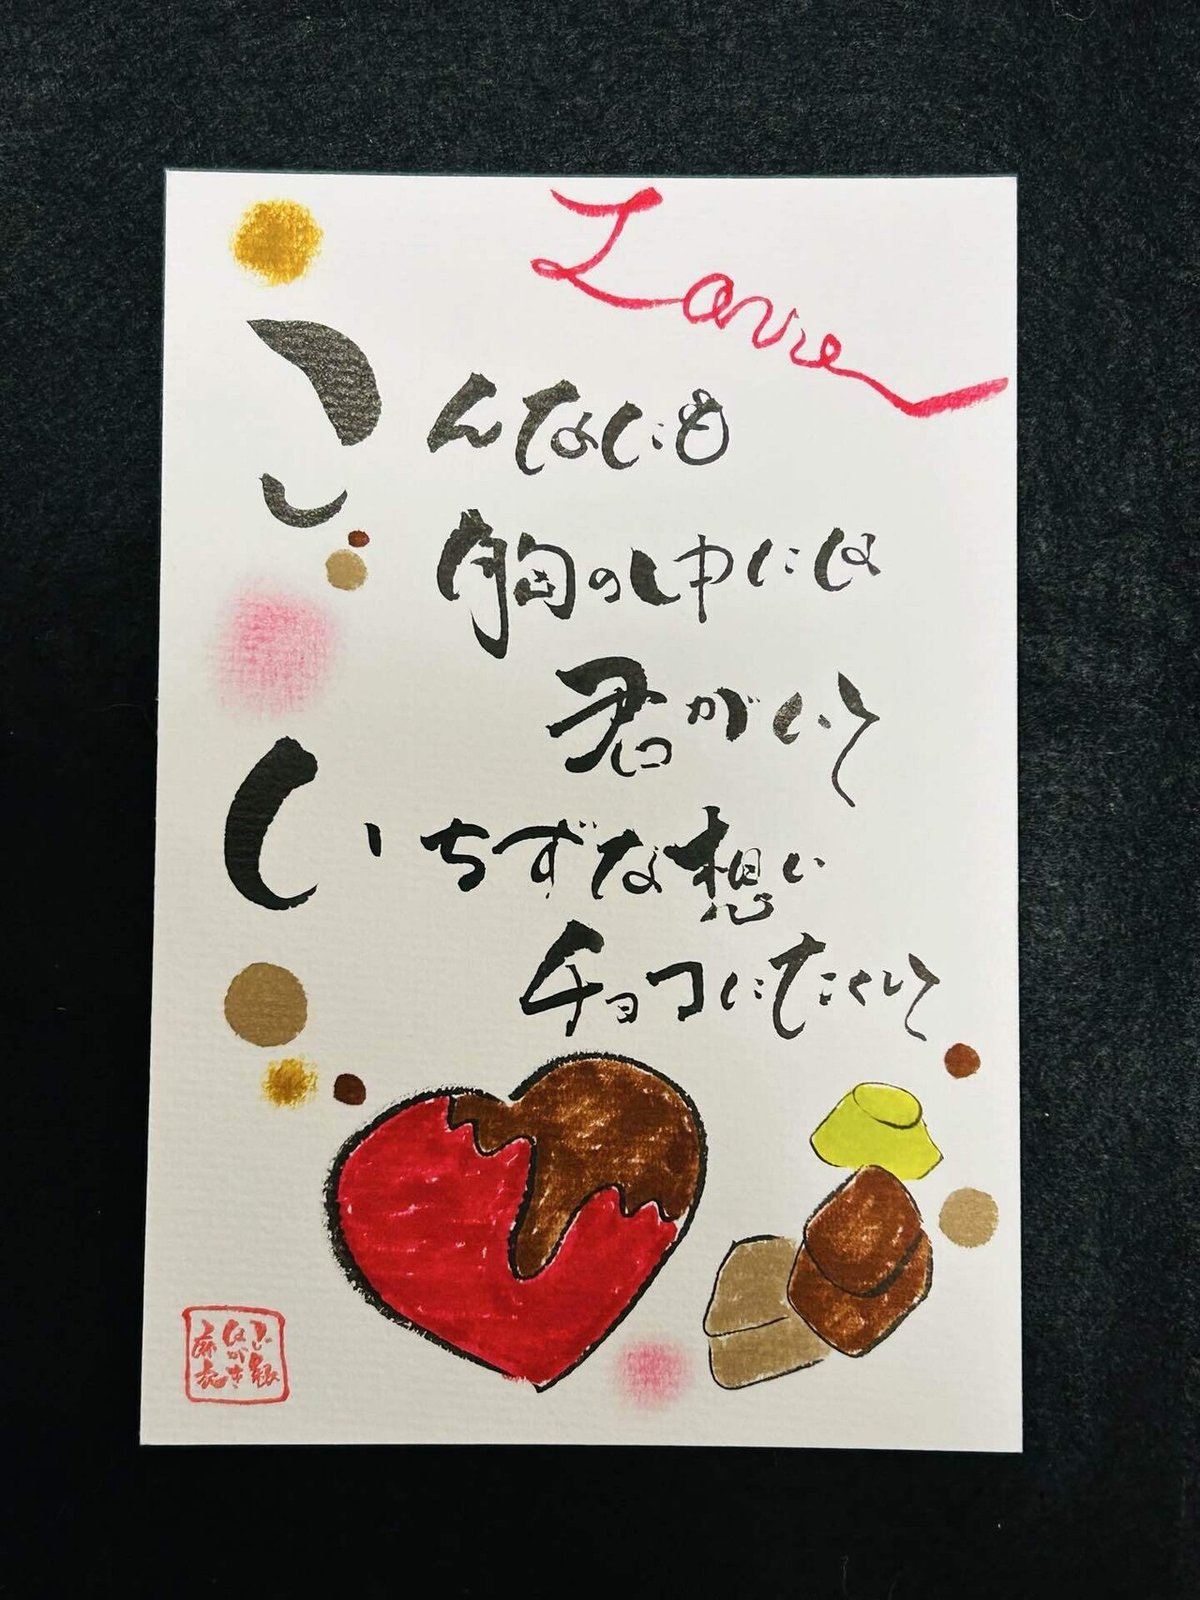 Love
こんなにも
胸の中には
君がいて
いちずな想い
チョコにたくして